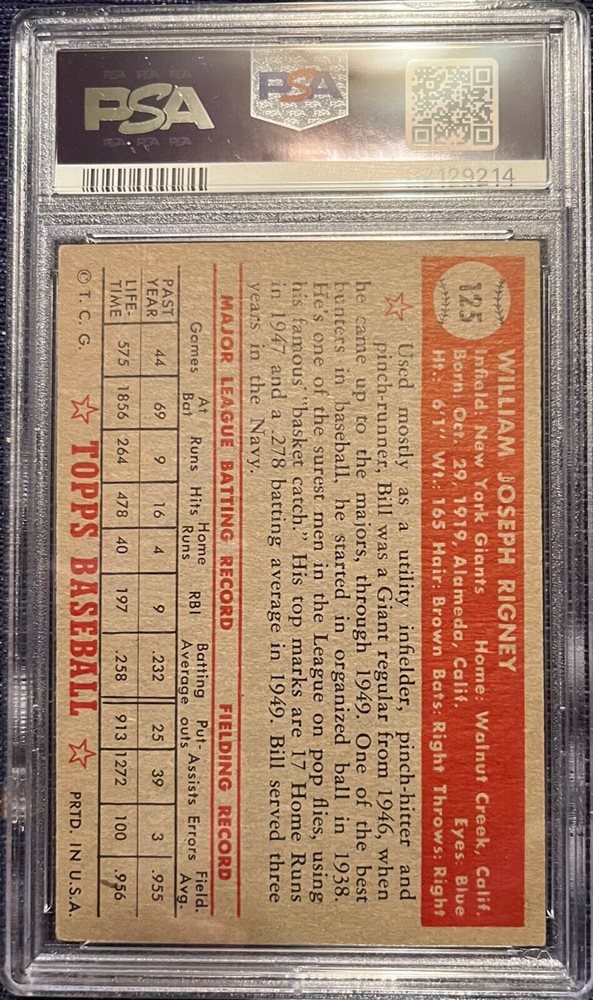 PSA
PSA
129214
125
WILLIAM JOSEPH RIGNEY
Infield: New York Giants Home: Walnut Creek, Calif.
Born: Oct. 29, 1919, Alameda, Calif. Eyes: Blue
Ht.: 6'1" Wt.: 165 Hair: Brown Bats: Right Throws: Right
Used mostly as a utility infielder, pinch-hitter and
pinch-runner, Bill was a Giant regular from 1946, when
he came up to the majors, through 1949. One of the best
bunters in baseball, he started in organized ball in 1938.
He's one of the surest men in the League on pop flies, using
his famous "basket catch." His top marks are 17 Home Runs
in 1947 and a .278 batting average in 1949. Bill served three
years in the Navy.
MAJOR LEAGUE BATTING RECORD FIELDING RECORD
Games At Bat Runs Hits Home Runs RBI Batting Average Put-outs Assists Errors Field. Avg.
PAST YEAR 44 69 9 16 4 9 .232 25 39 3 .955
LIFE-TIME 575 1856 264 478 40 197 .258 913 1272 100 .956
© T. C. G. TOPPS BASEBALL PRTD. IN U.S.A.